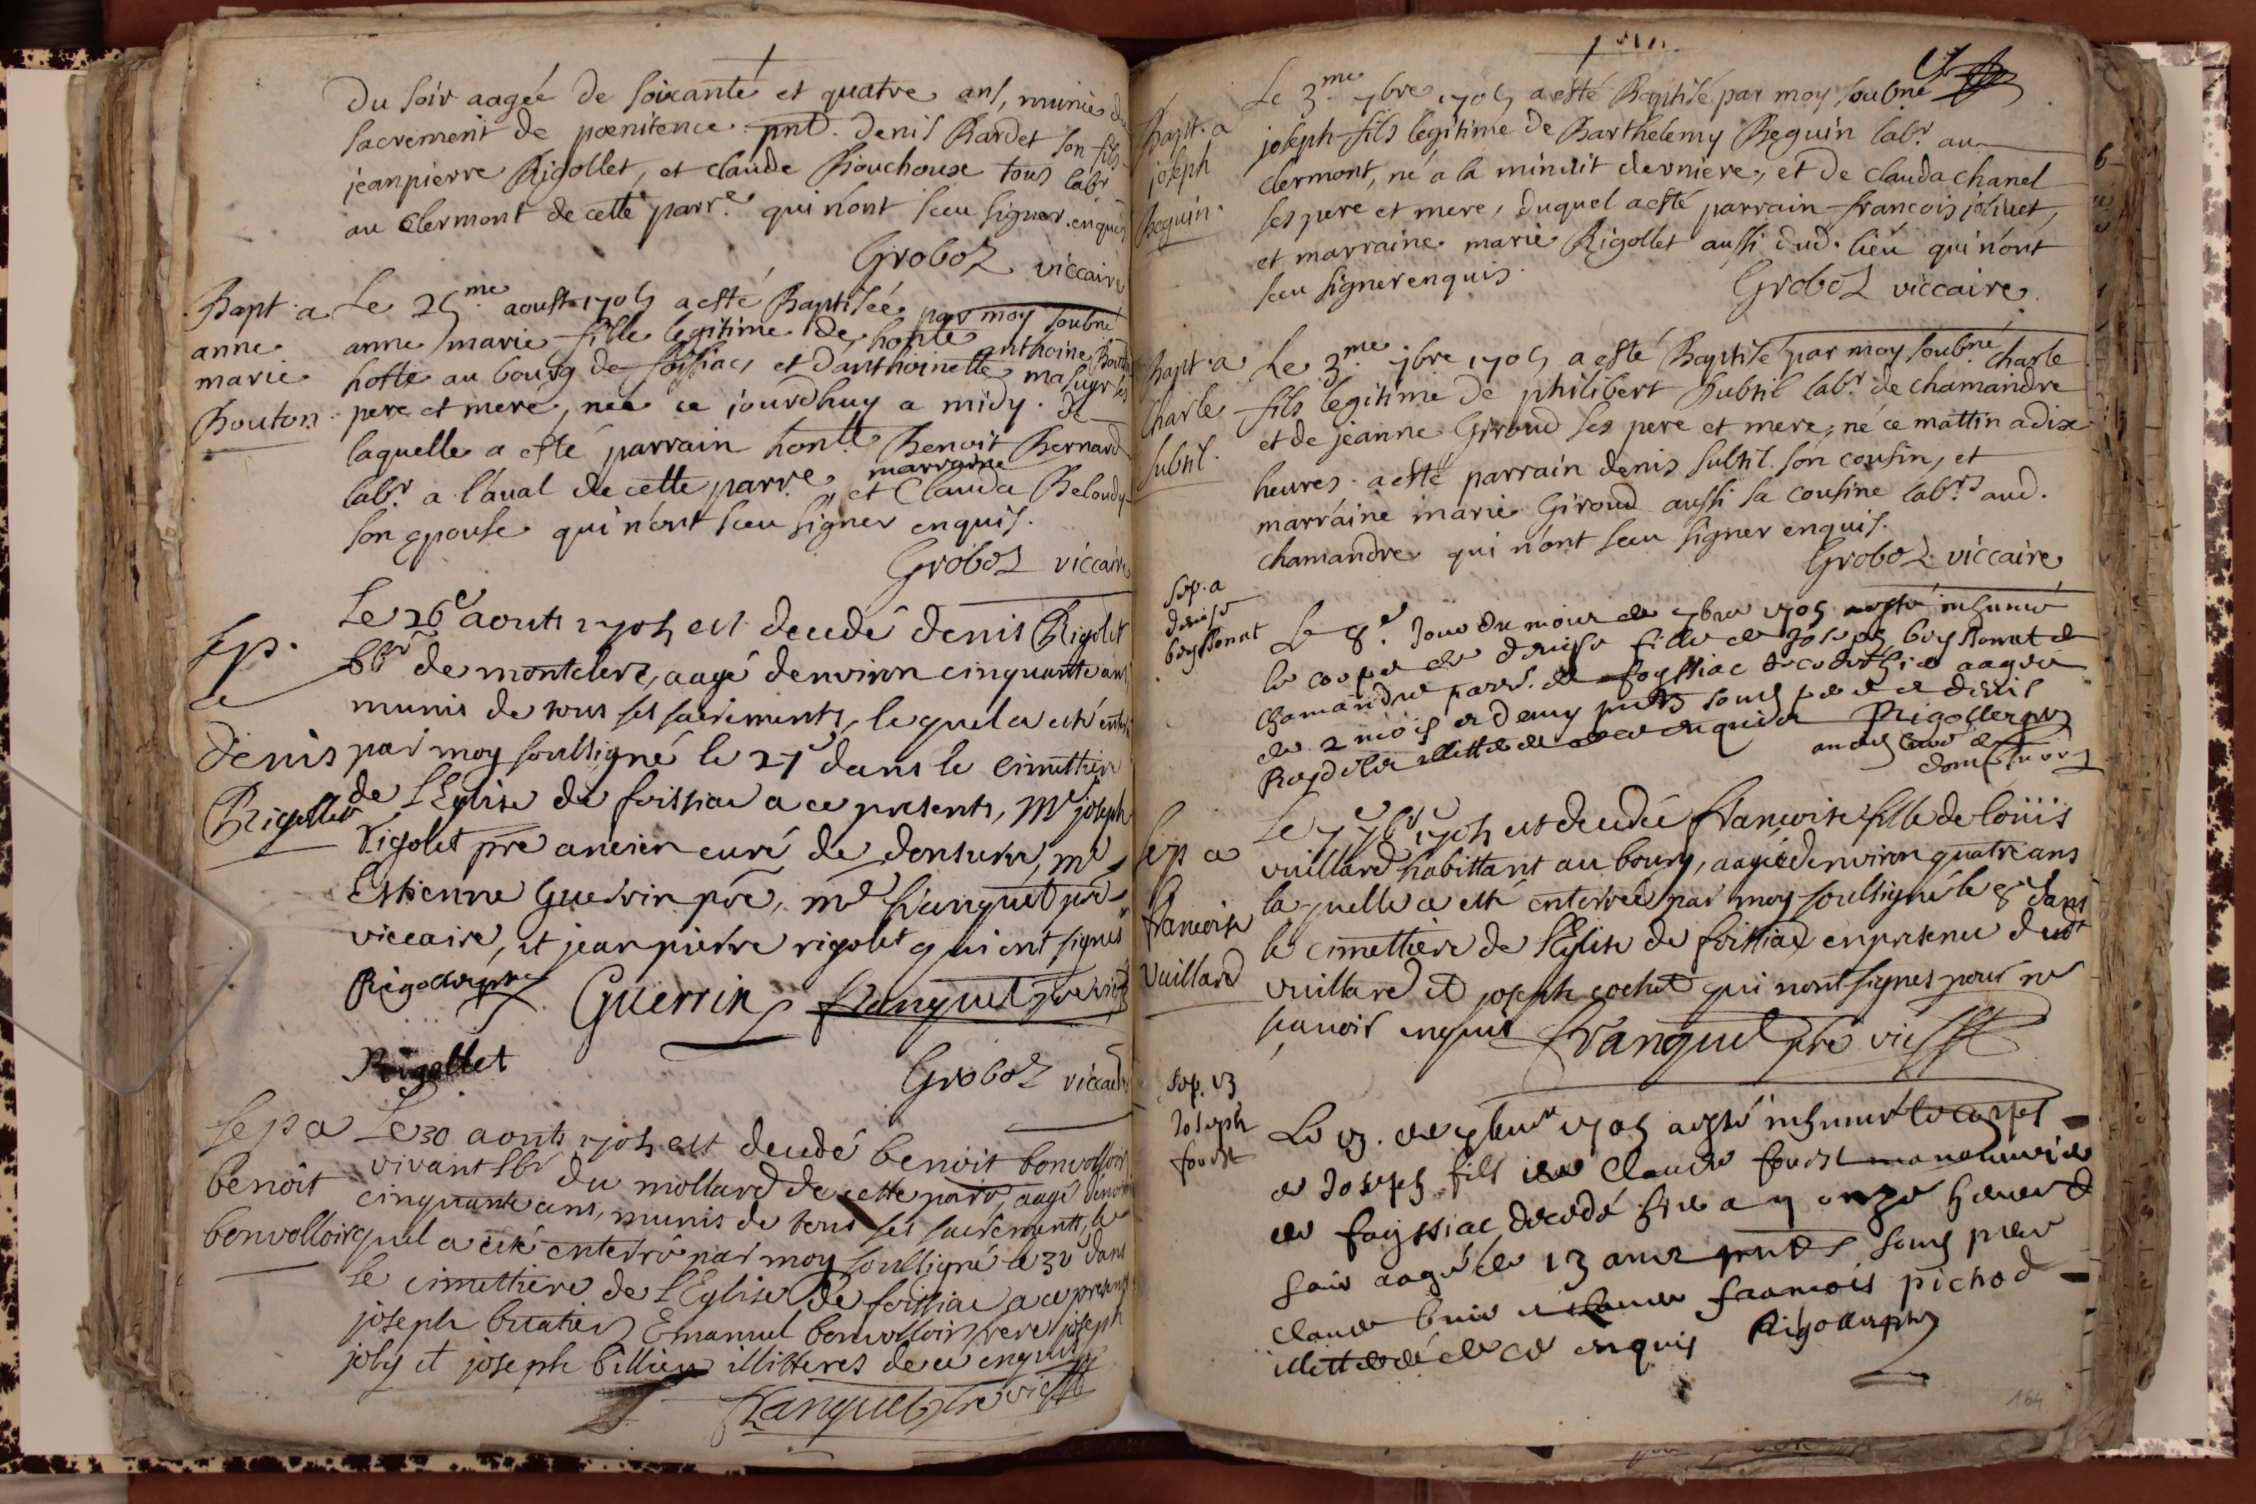 du soir aagée de soixante et quatre ans, munie du
sacrement de poenitence pnt. denis Bardet son fils
jeanpierre Rigollet, et claude Bouchoux tous labr
au Clermont de cette parre. qui n'ont sceu signer enquis
Groboz viccaire
Bapt. a
anne
marie
Bouton.
Le 25me aoust 1705 a esté Baptisée par moy soubné
anne marie fille legitime de honte anthoine Bouton
hoste au bourg de foissiac, et d'anthoinette masuyr ses
pere et mere, née ce jourd'huy a midy. de
laquelle a esté parrain honte Benoit Bernard
labr a l'aual de cette parre, marraine
et Clauda Beloudy
son epouse qui n'ont sceu signer enquis.
Groboz viccaire
Sep.
a
denis
Rigollet
Le 26e aouts 1705 est decedé denis Rigolet
lbr de montclerc, aagé denviron cinquante ans
munis de tous ses sacrements, lequel a esté enterré
par moy soussigné le 27e dans le cimettiere
de L'Eglise de foissiac a ce presents, Mre joseph
rigolet pre ancien curé de domsure, mre
Estienne Guerrin pre, mre franquet pre
viccaire, et jean pierre rigolet qui ont signés
Rigollet pre
Guerrin
franquet pre vic
Rigollet
Groboz viccaire
Sep a
benoit
bonvolloir
Le 30 aouts 1705 est decedé benoit bonvolloir
vivant lbr du mollard de cette parr, aagé denviron
cinquante ans, munis de tous ses sacrements, le
quel a esté enterré par moy soussigné le 30e dans
le cimettiere de L'Eglise de foissiac a ce presents
joseph buatier Emanuel bonvolloir, rever joseph
joly et joseph billieu illitteres de ce enquis
franquet pre vic
Bapt. a
joseph
Beguin.
Le 3me 7bre 1705 a esté Baptisé par moy soubné
joseph fils legitime de Barthelemy Beguin labr. au
clermont, né a la minuit derniere, et de clauda chanel
ses pere et mere, duquel a esté parrain francois jolivet,
et marraine marie Rigollet aussi dud. lieu qui n'ont
sceu signer enquis.
Groboz viccaire.
Bapt. a
Charle
Subtil.
Le 3me 7bre 1705 a esté Baptisé par moy soubné charle
fils legitime de philibert Subtil labr. de chamandre
et de jeanne Giroud ses pere et mere, né ce mattin a dix
heures. a esté parrain denis subtil son cousin, et
marraine marie Giroud aussi sa cousine labrs aud.
chamandre qui n'ont sceu signer enquis.
Groboz viccaire
Sep. a
denise
boyssonat
Le 8e Jour du mois de 7bre 1705 a esté inhumé
le corps de denise fille de Joseph boyssonat de
chamandre parr. de foyssiac decedé hier aagée
de 2 mois et demy pnts sond pere et denis
illitteré de ce enquis Rigollet pre
ancien curé de
domsure
Sep a
francoise
Vuillard
Le 7e 7bre 1705 est decedée francoise fille de loüis
vuillard habittant au bourg, aagée denviron quatre ans
laquelle a esté enterrée par moy soussigné le 8e dans
le cimettiere de L'Eglise de foissiac en presence dudt
vuillard et joseph cochet qui n'ont signés pour ne
scauoir enquis franquet pre vic
Sep. 13
Joseph
forest
Le 13. de 7bre 1705 a esté inhumé le corps
de Joseph fils de Claude forest manouurier
de foyssiac decedé hier a onze heures de
soir aagé de 13 ans pnts sond pere
claude et francois pichod
illitteré de ce enquis Rigollet pre
164